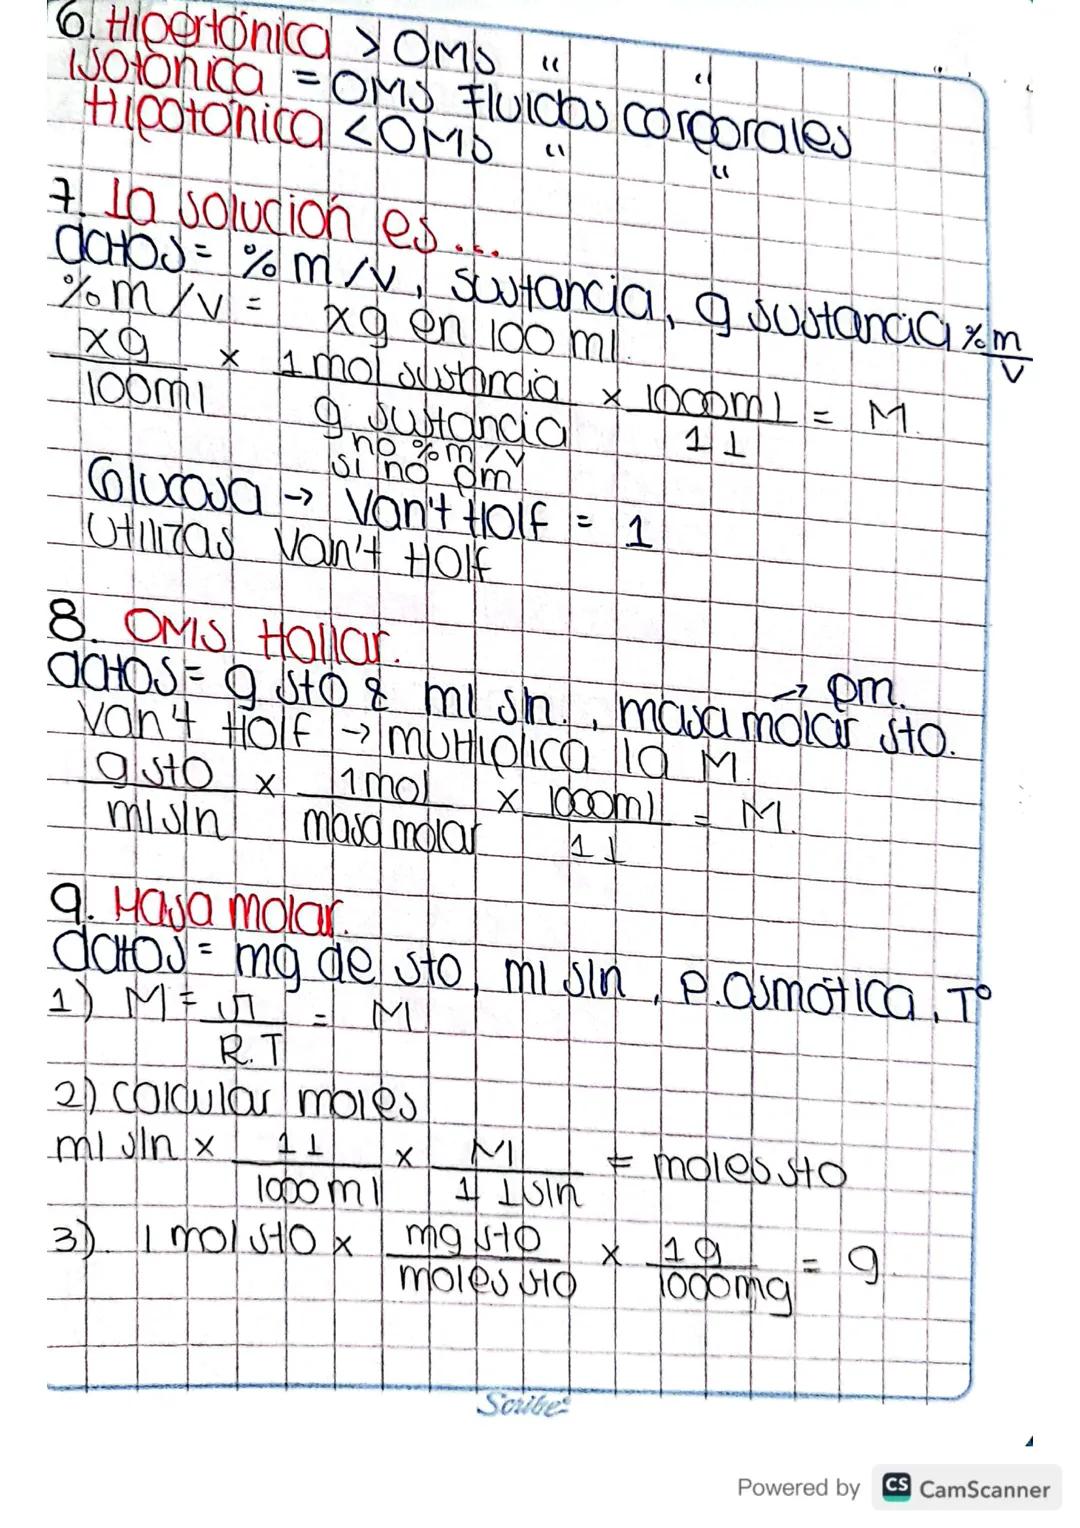 6. Hipertónica > OMS " "
Isotónica = OMS Fluidos corporales
Hipotónica < OMS " "
7. La solución es...
datos = % m/v, sustancia, g sustancia % m/v
% m/v = xg en 100 ml
xg / 100ml x 1 mol sustancia / g sustancia x 1000ml / 1 L = M.
no % m/v
si no pm
Glucosa → Van't Holf = 1
Utilizas Van't Holf
8. OMS Hallar.
datos = g sto & ml sln., masa molar sto. → pm.
Van't Holf → multiplica la M.
g sto / ml sln x 1 mol / masa molar x 1000ml / 1 L = M.
9. Masa molar.
datos = mg de sto, ml sln, P. Osmótica, T°
1) M = π / R.T = M
2) calcular moles
ml sln x 1 L / 1000 ml x M / 1 L sln = moles sto
3). 1 mol sto x mg sto / moles sto x 1g / 1000mg = g.
Scribe
Powered by CS CamScanner